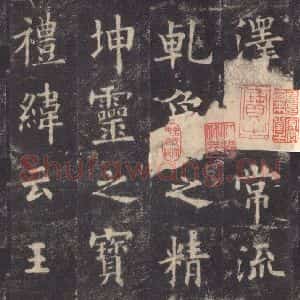 澤常流
乾象之精
坤靈之寶
禮緯云王
Shufawang.CN